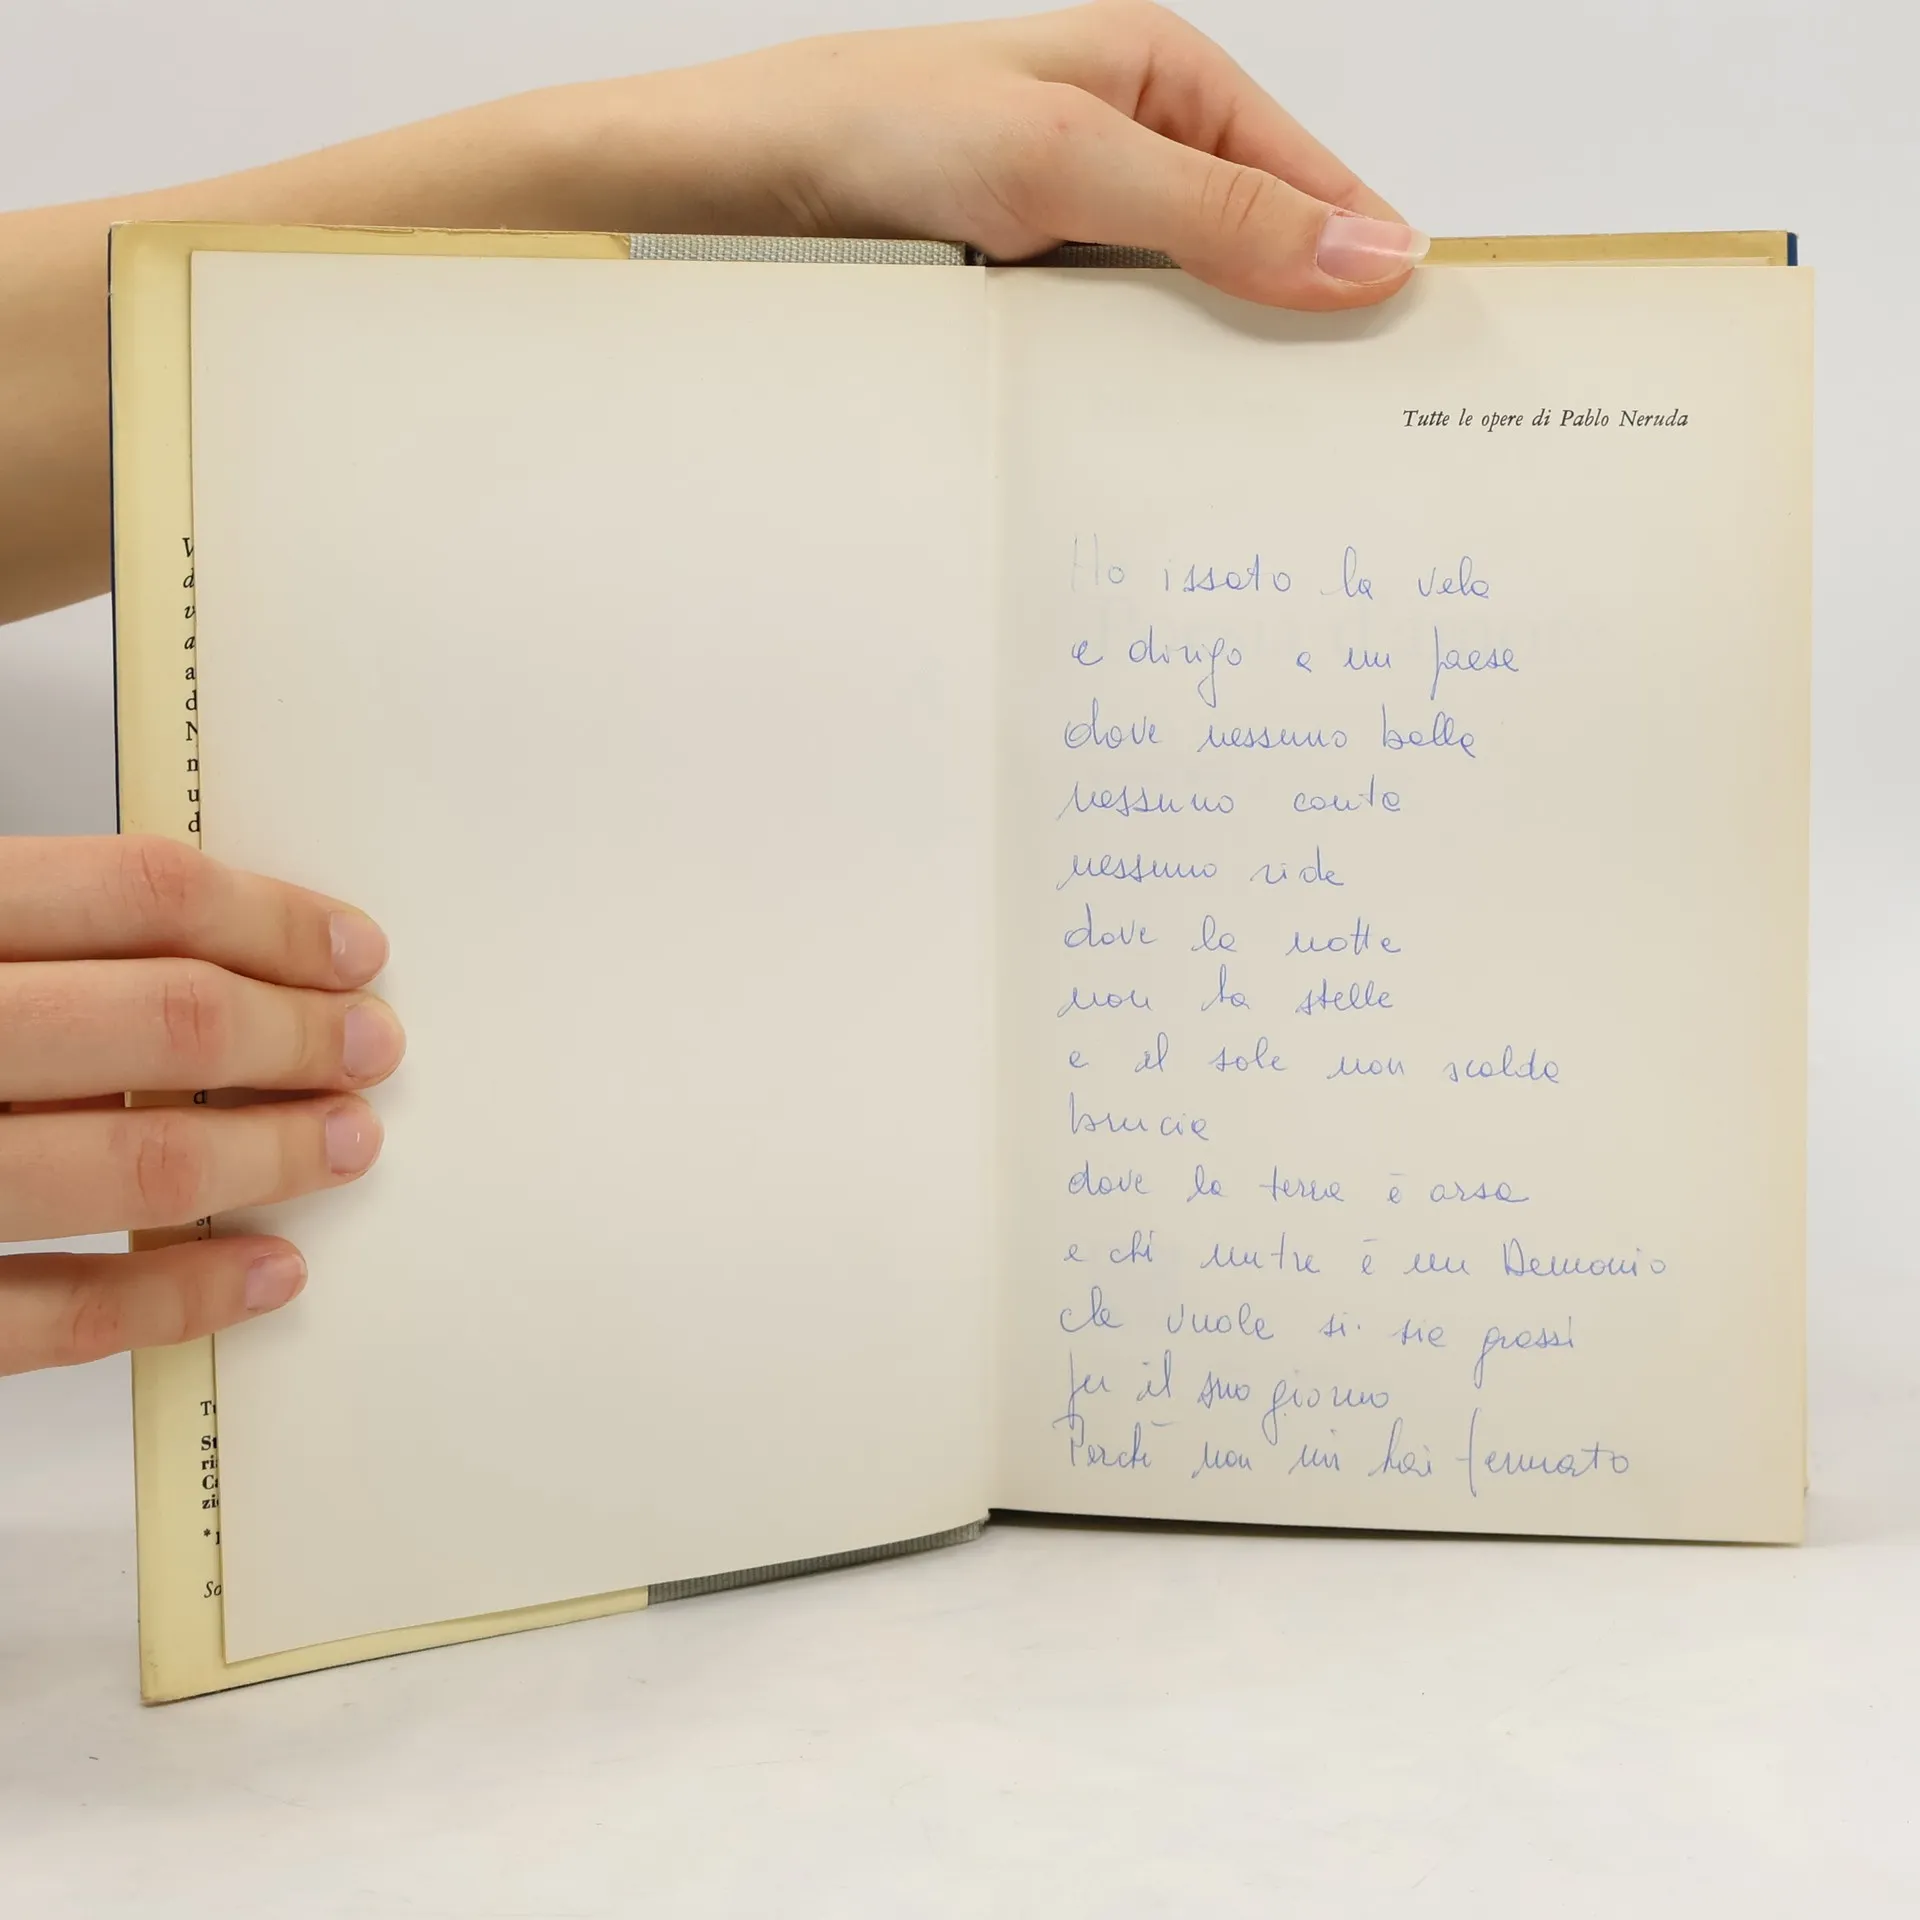 Tutte le opere di Pablo Neruda
Ho issato la vela
e dirigo a un paese
dove nessuno balla
nessuno canta
nessuno ride
dove la notte
non ha stelle
e il sole non scalda
brucia
dove la terra è arsa
e chi nutre è un Demonio
che vuole si sia grassi
per il suo giorno
Perché non mi hai fermato
V
d
v
a
a
d
N
n
u
d
d
Tu
St
ri
Ca
zi
*
So